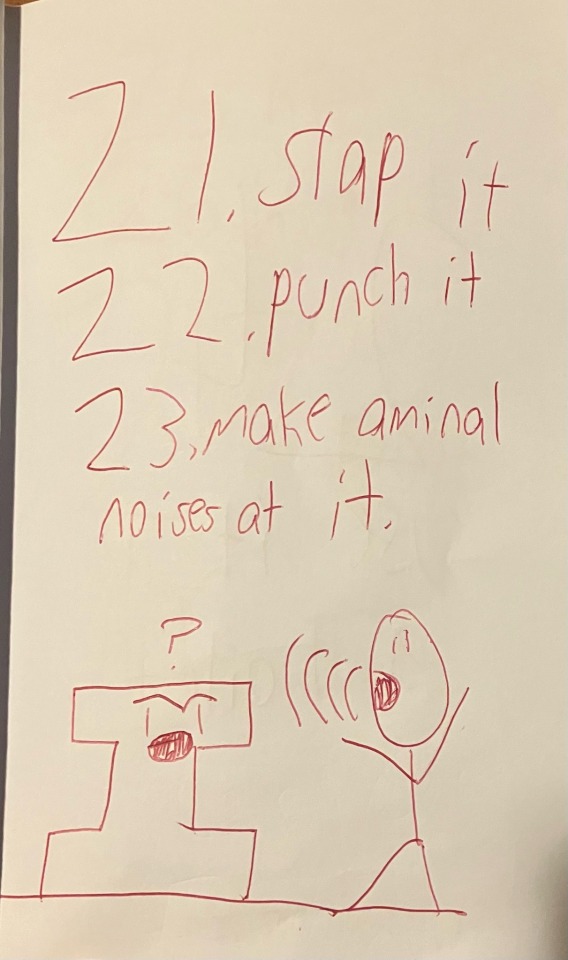 21. stap it
22. punch it
23. make aminal
noises at it.
?